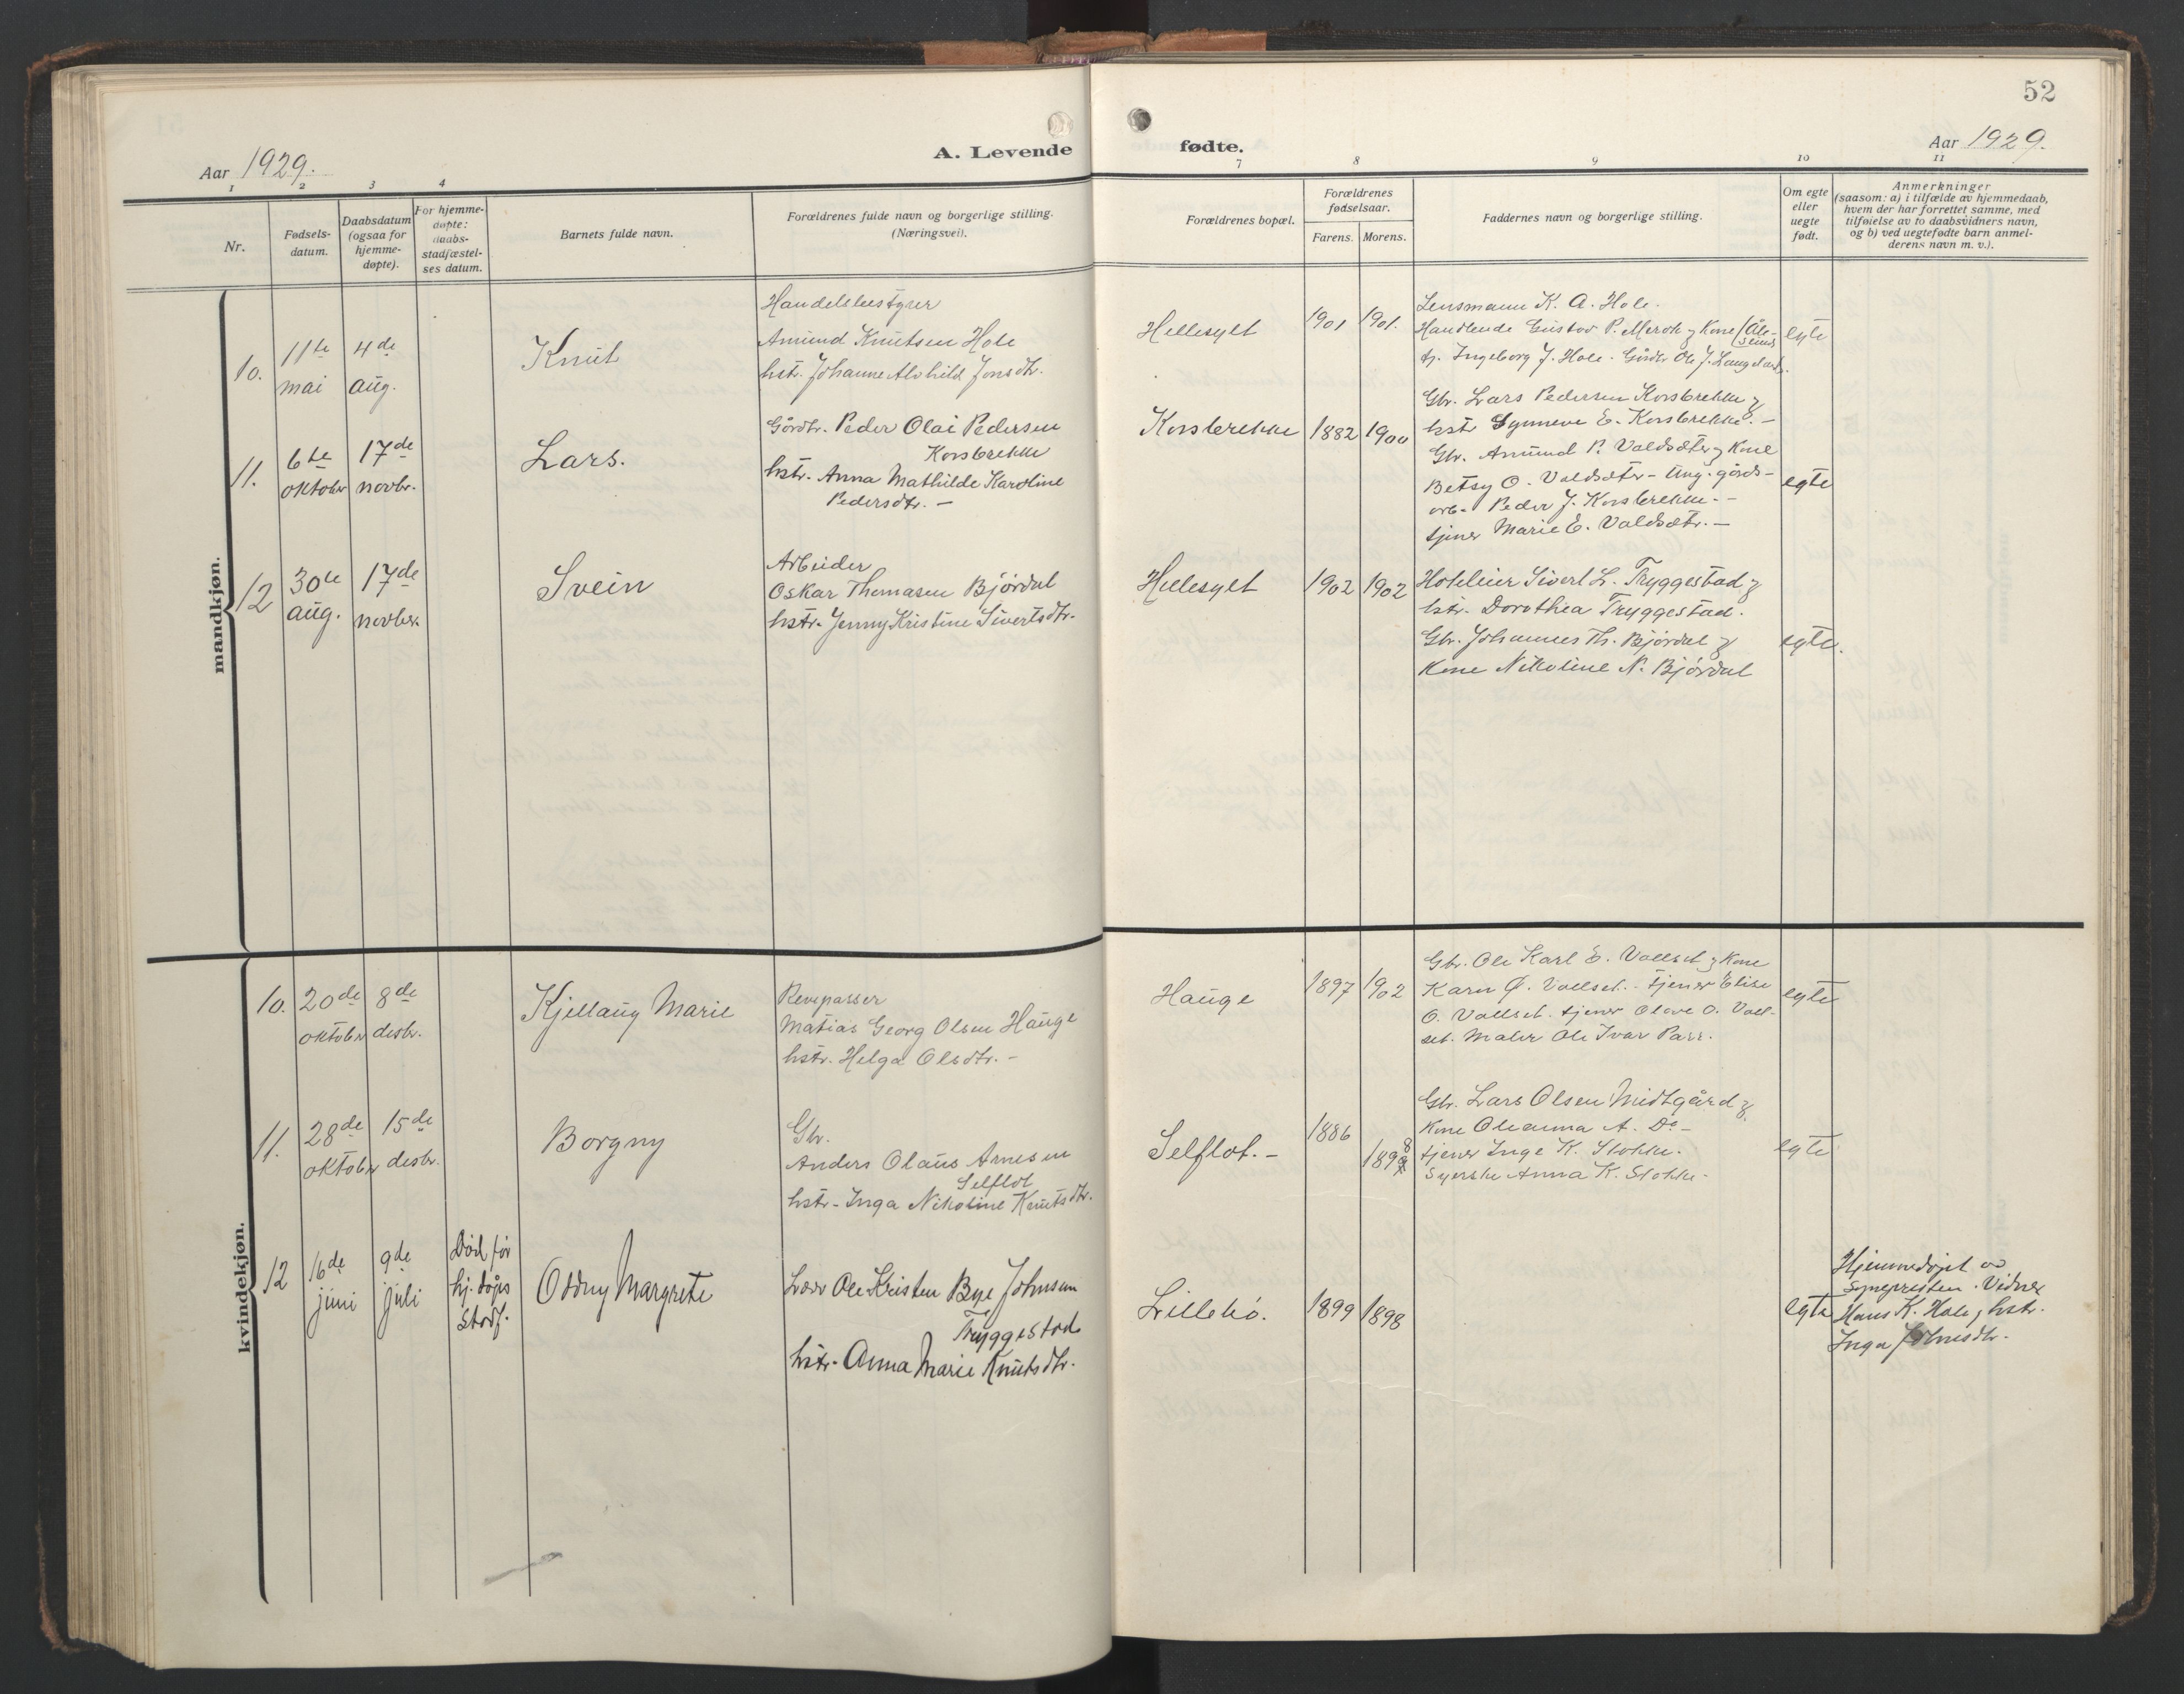 52
Aar 1929.
A. Levende
fødte.
Aar 1929.
1 2 3 4
7 8 9 10 11
Nr.
Fødsels-
datum.
Daabsdatum
(ogsaa for
hjemme-
døpte).
For hjemme-
døpte:
daabs-
stadfæstel-
ses datum.
Barnets fulde navn.
Forældrenes fulde navn og borgerlige stilling.
(Næringsvei).
Forældrenes bopæl.
Forældrenes
fødselsaar.
Farens. Morens.
Faddernes navn og borgerlige stilling.
Om egte
eller
uegte
født.
Anmerkninger
(saasom: a) i tilfælde av hjemmedaab,
hvem der har forrettet samme, med
tilføielse av to daabsvidners navn,
og b) ved uegtefødte barn anmel-
derens navn m. v.).
mandkjøn.
10.
11te
mai
4de
aug.
Knut
Handelsbestyrer
Amund Knutsen Hole
hstr. Johanne Alvhild Jonsdtr.
Hellesylt
1901 1901.
Lensmann K. A. Hole.
Handlende Gustav P. Merok og Kone (Åle-
sund)
Ingeborg J. Hole. Gårdbr. Ole J. Langeland.
egte
11.
6te
oktober
17de
novbr.
Lars.
Gårdbr. Peder Olai Pedersen
Korsbrekke
hstr. Anna Mathilde Karoline
Pedersdtr. -
Korsbrekke
1882 1900
Gbr. Lars Pedersen Korsbrekke og
hstr Synneve E. Korsbrekke. -
Gbr. Amund P. Valdsæter og Kone
Betsy O. Valdsæter - Ung. gårds-
arb. Peder J. Korsbrekke. -
tjener Marie E. Valdsætr. -
egte
12
30te
aug.
17de
novber.
Svein
Arbeider
Oskar Thomasen Bjørdal
hstr. Jenny Kristine Sivertsdtr.
Hellesylt
1902 1902
Hotelleier Sivert L. Tryggestad og
hstr. Dorothea Tryggestad.
Gbr. Johannes Th. Bjørdal og
Kone Nikoline N. Bjørdal
egte.
kvindekjøn.
10.
20de
oktober
8de
desbr.
Kjellaug Marie
Revepasser
Matias Georg Olsen Hauge
hstr. Helga Olsdtr. -
Hauge
1897 1902
Gbr. Ole Karl E. Vollset og Kone
Karn Ø. Vollset. - tjener Elise
O. Vollset. tjener Olave O. Voll-
set. Maler Ole Ivar Parr.
egte
11.
28de
oktober
15de
desbr.
Borgny
Gbr.
Anders Olaus Arnesen
Selflot
hstr. Inga Nikoline Knutsdtr.
Selflot. -
1886
1898
Gbr. Lars Olsen Midtgård og
Kone Oleanna A. Do -
tjener Inge K. Stokke.
Syerske Anna K. Stokke.
egte
12
16de
juni
9de
juli
Død før
hj. døpes
stadf.
Oddny Margrete
Lærer Ole Kristen Bye Johnsen
Tryggestad
hstr. Anna Marie Knutsdtr.
Lillebø.
1899 1898
egte
Hjemmedøpt av
sogneprésten. Vidner
Hans K. Hole og hstr.
Inga Johnsdtr.